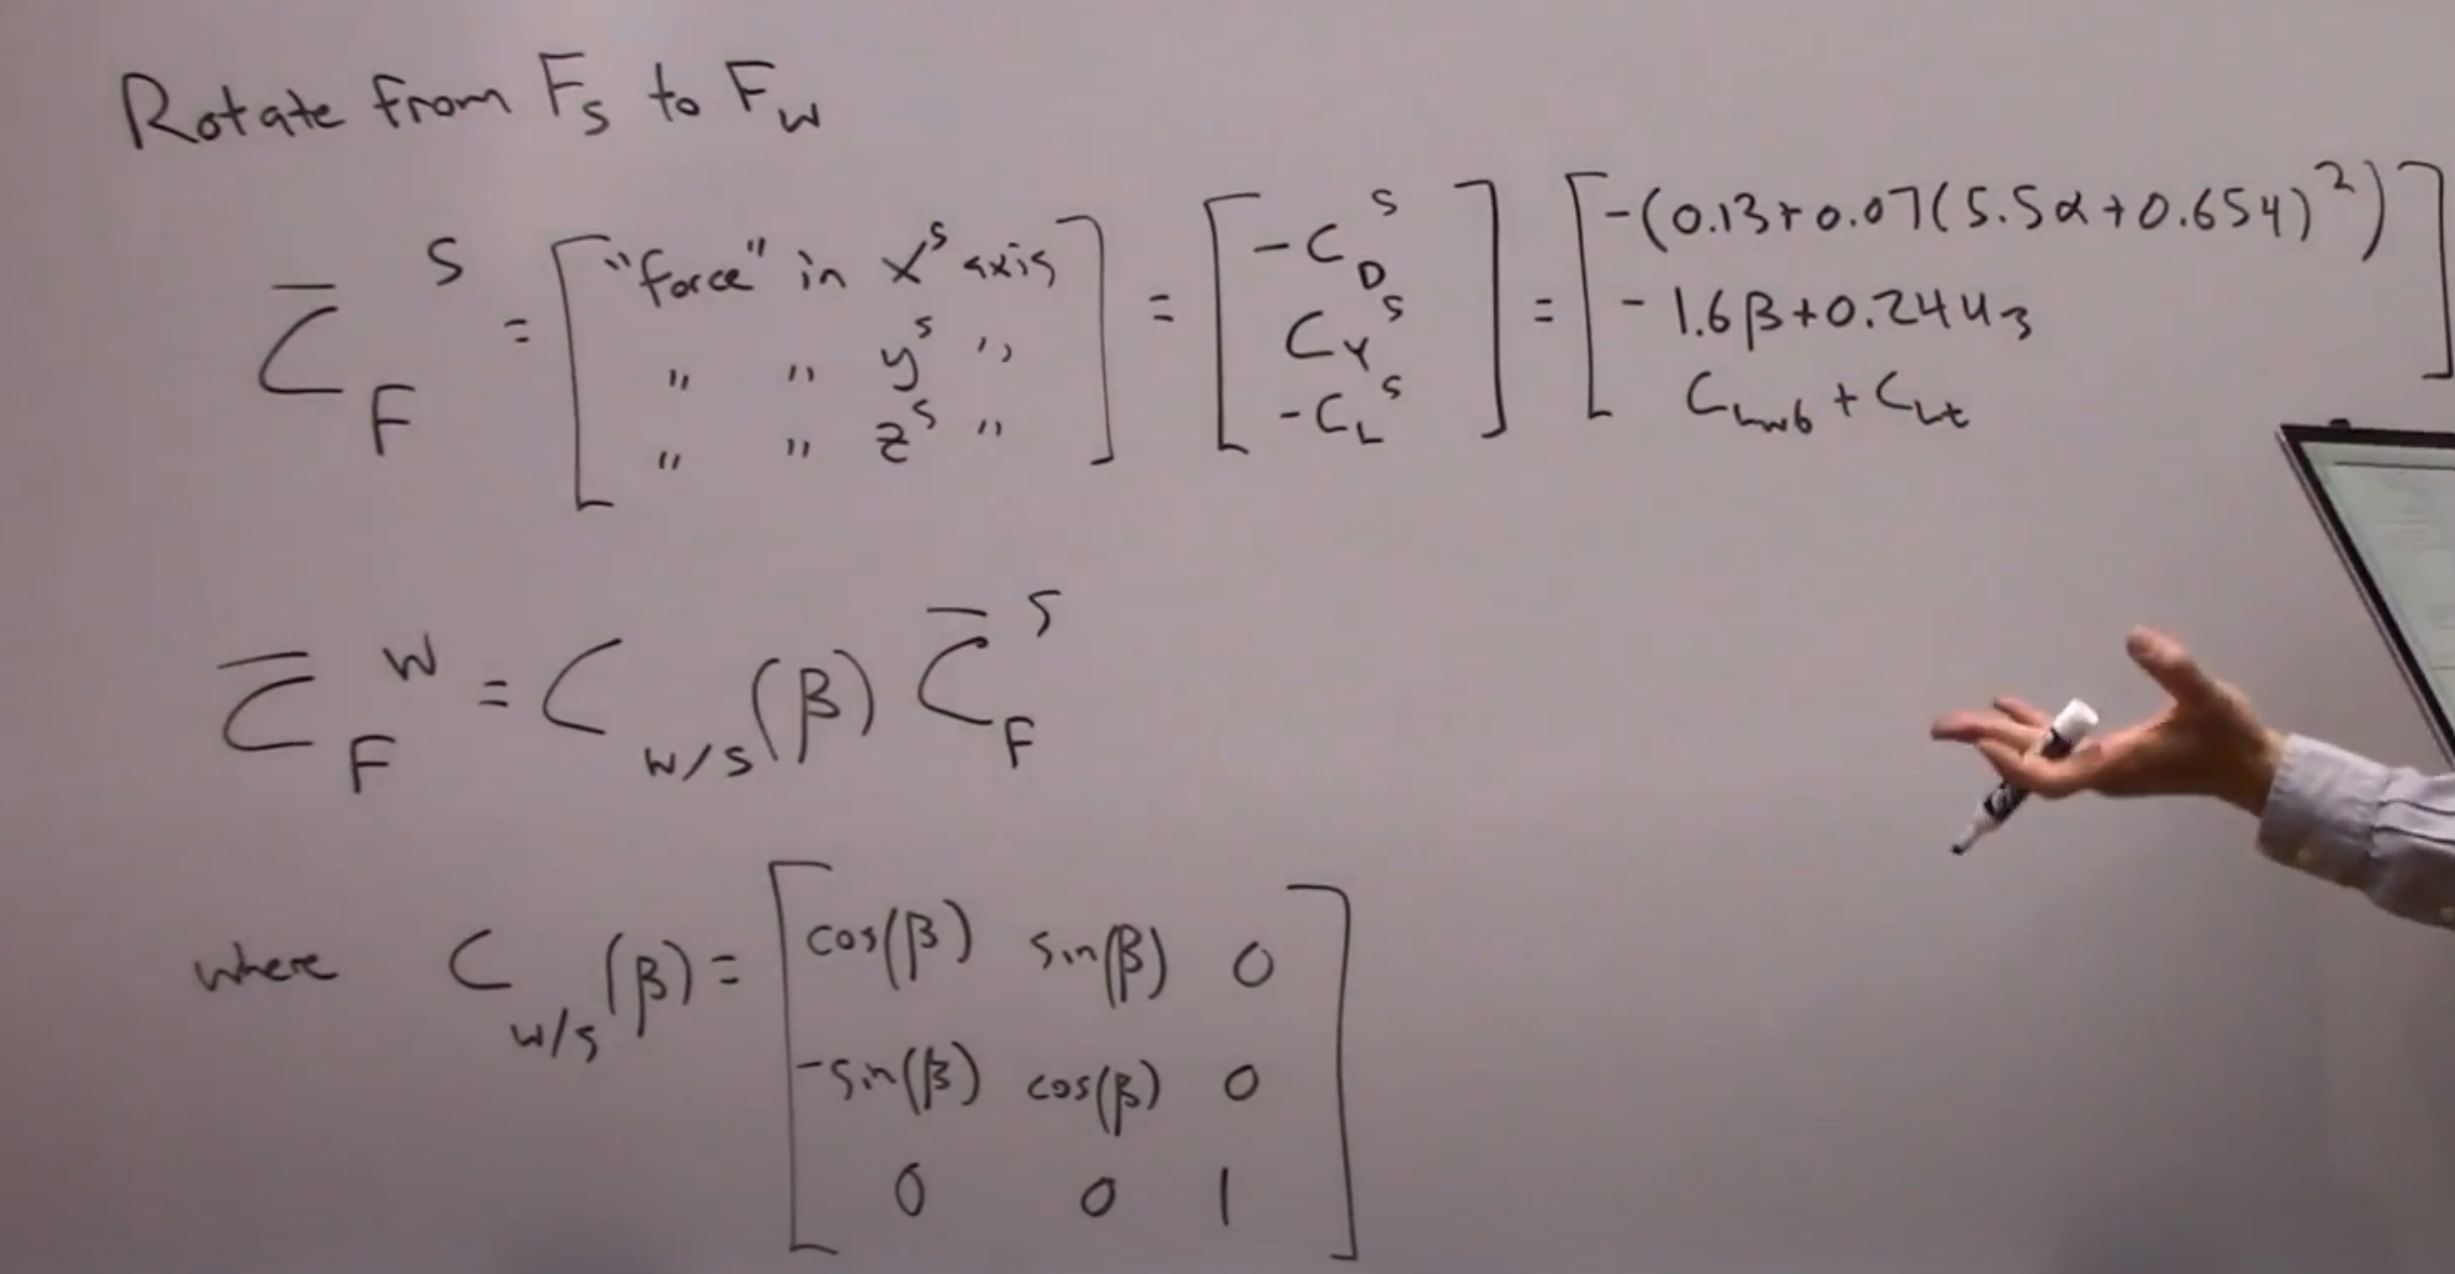 Rotate from F_S to F_W
C̄_F^S = [ "force" in x^S axis ] = [ -C_D^S ] = [ -(0.13+0.07(5.5α+0.654)^2) ]
[ " " y^S " ] [ C_Y^S ] [ -1.6β+0.24u_3 ]
[ " " z^S " ] [ -C_L^S ] [ C_Lwb + C_Lt ]
C̄_F^W = C_W/S(β) C̄_F^S
where C_W/S(β) = [ cos(β) sin(β) 0 ]
[ -sin(β) cos(β) 0 ]
[ 0 0 1 ]